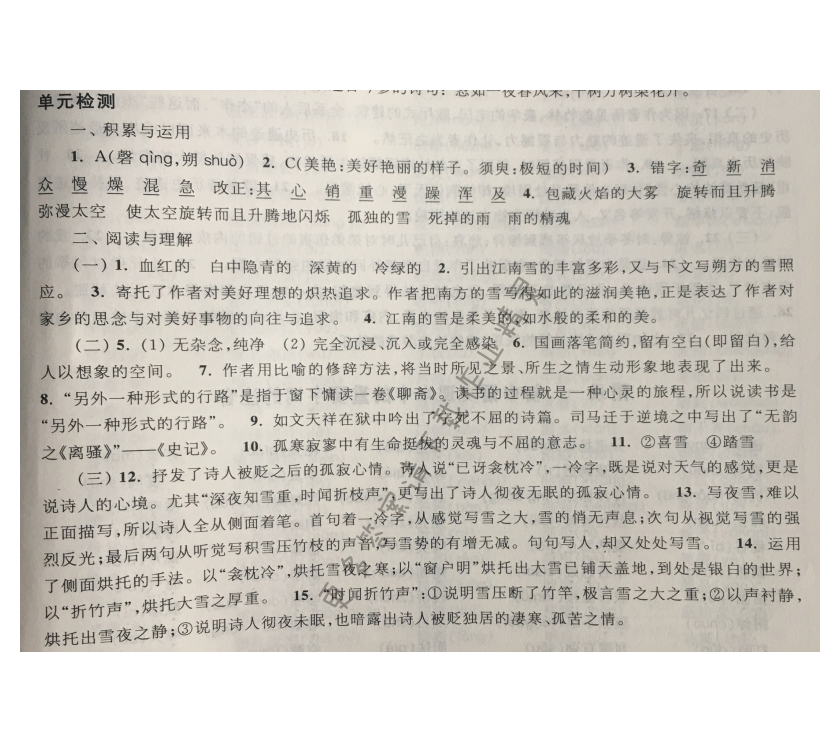 忽如一夜春风来,千树万树梨花开。
单元检测
一、积累与运用
1. A(磬 qìng,朔 shuò) 2. C(美艳:美好艳丽的样子。须臾:极短的时间) 3. 错字:奇 新 消
众 慢 燥 混 急 改正:其 心 销 重 漫 躁 浑 及 4. 包藏火焰的大雾 旋转而且升腾
弥漫太空 使太空旋转而且升腾地闪烁 孤独的雪 死掉的雨 雨的精魂
二、阅读与理解
(一) 1. 血红的 白中隐青的 深黄的 冷绿的 2. 引出江南雪的丰富多彩,又与下文写朔方的雪照
应。 3. 寄托了作者对美好理想的炽热追求。作者把南方的雪写得如此的滋润美艳,正是表达了作者对
家乡的思念与对美好事物的向往与追求。 4. 江南的雪是柔美的如水般的柔和的美。
(二) 5. (1) 无杂念,纯净 (2) 完全沉浸、沉入或完全感染 6. 国画落笔简约,留有空白(即留白),给
人以想象的空间。 7. 作者用比喻的修辞方法,将当时所见之景、所生之情生动形象地表现了出来。
8. “另外一种形式的行路”是指于窗下慵读一卷《聊斋》。读书的过程就是一种心灵的旅程,所以说读书是
“另外一种形式的行路”。 9. 如文天祥在狱中吟出了宁死不屈的诗篇。司马迁于逆境之中写出了“无韵
之《离骚》”——《史记》。 10. 孤寒寂寥中有生命挺拔的灵魂与不屈的意志。 11. ②喜雪 ④踏雪
(三) 12. 抒发了诗人被贬之后的孤寂心情。诗人说“已讶衾枕冷”,一冷字,既是说对天气的感觉,更是
说诗人的心境。尤其“深夜知雪重,时闻折枝声”,更写出了诗人彻夜无眠的孤寂心情。 13. 写夜雪,难以
正面描写,所以诗人全从侧面着笔。首句着一冷字,从感觉写雪之大,雪的悄无声息;次句从视觉写雪的强
烈反光;最后两句从听觉写积雪压竹枝的声音,写雪势的有增无减。句句写人,却又处处写雪。 14. 运用
了侧面烘托的手法。以“衾枕冷”,烘托雪夜之寒;以“窗户明”烘托出大雪已铺天盖地,到处是银白的世界;
以“折竹声”,烘托大雪之厚重。 15. “时闻折竹声”:①说明雪压断了竹竿,极言雪之大之重;②以声衬静,
烘托出雪夜之静;③说明诗人彻夜未眠,也暗露出诗人被贬独居的凄寒、孤苦之情。